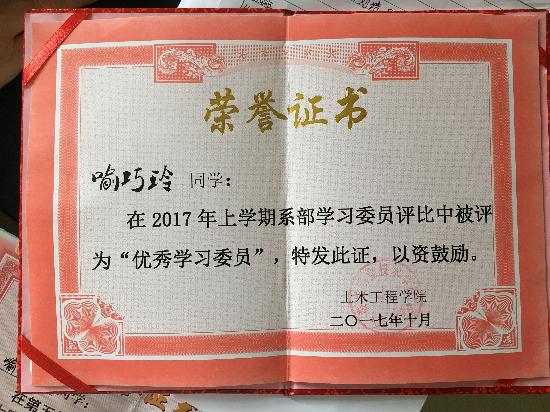 荣誉证书
喻巧玲 同学：
在 2017 年上学期系部学习委员评比中被评
为“优秀学习委员”，特发此证，以资鼓励。
土木工程学院
二〇一七年十月
喻
同学：
在第五